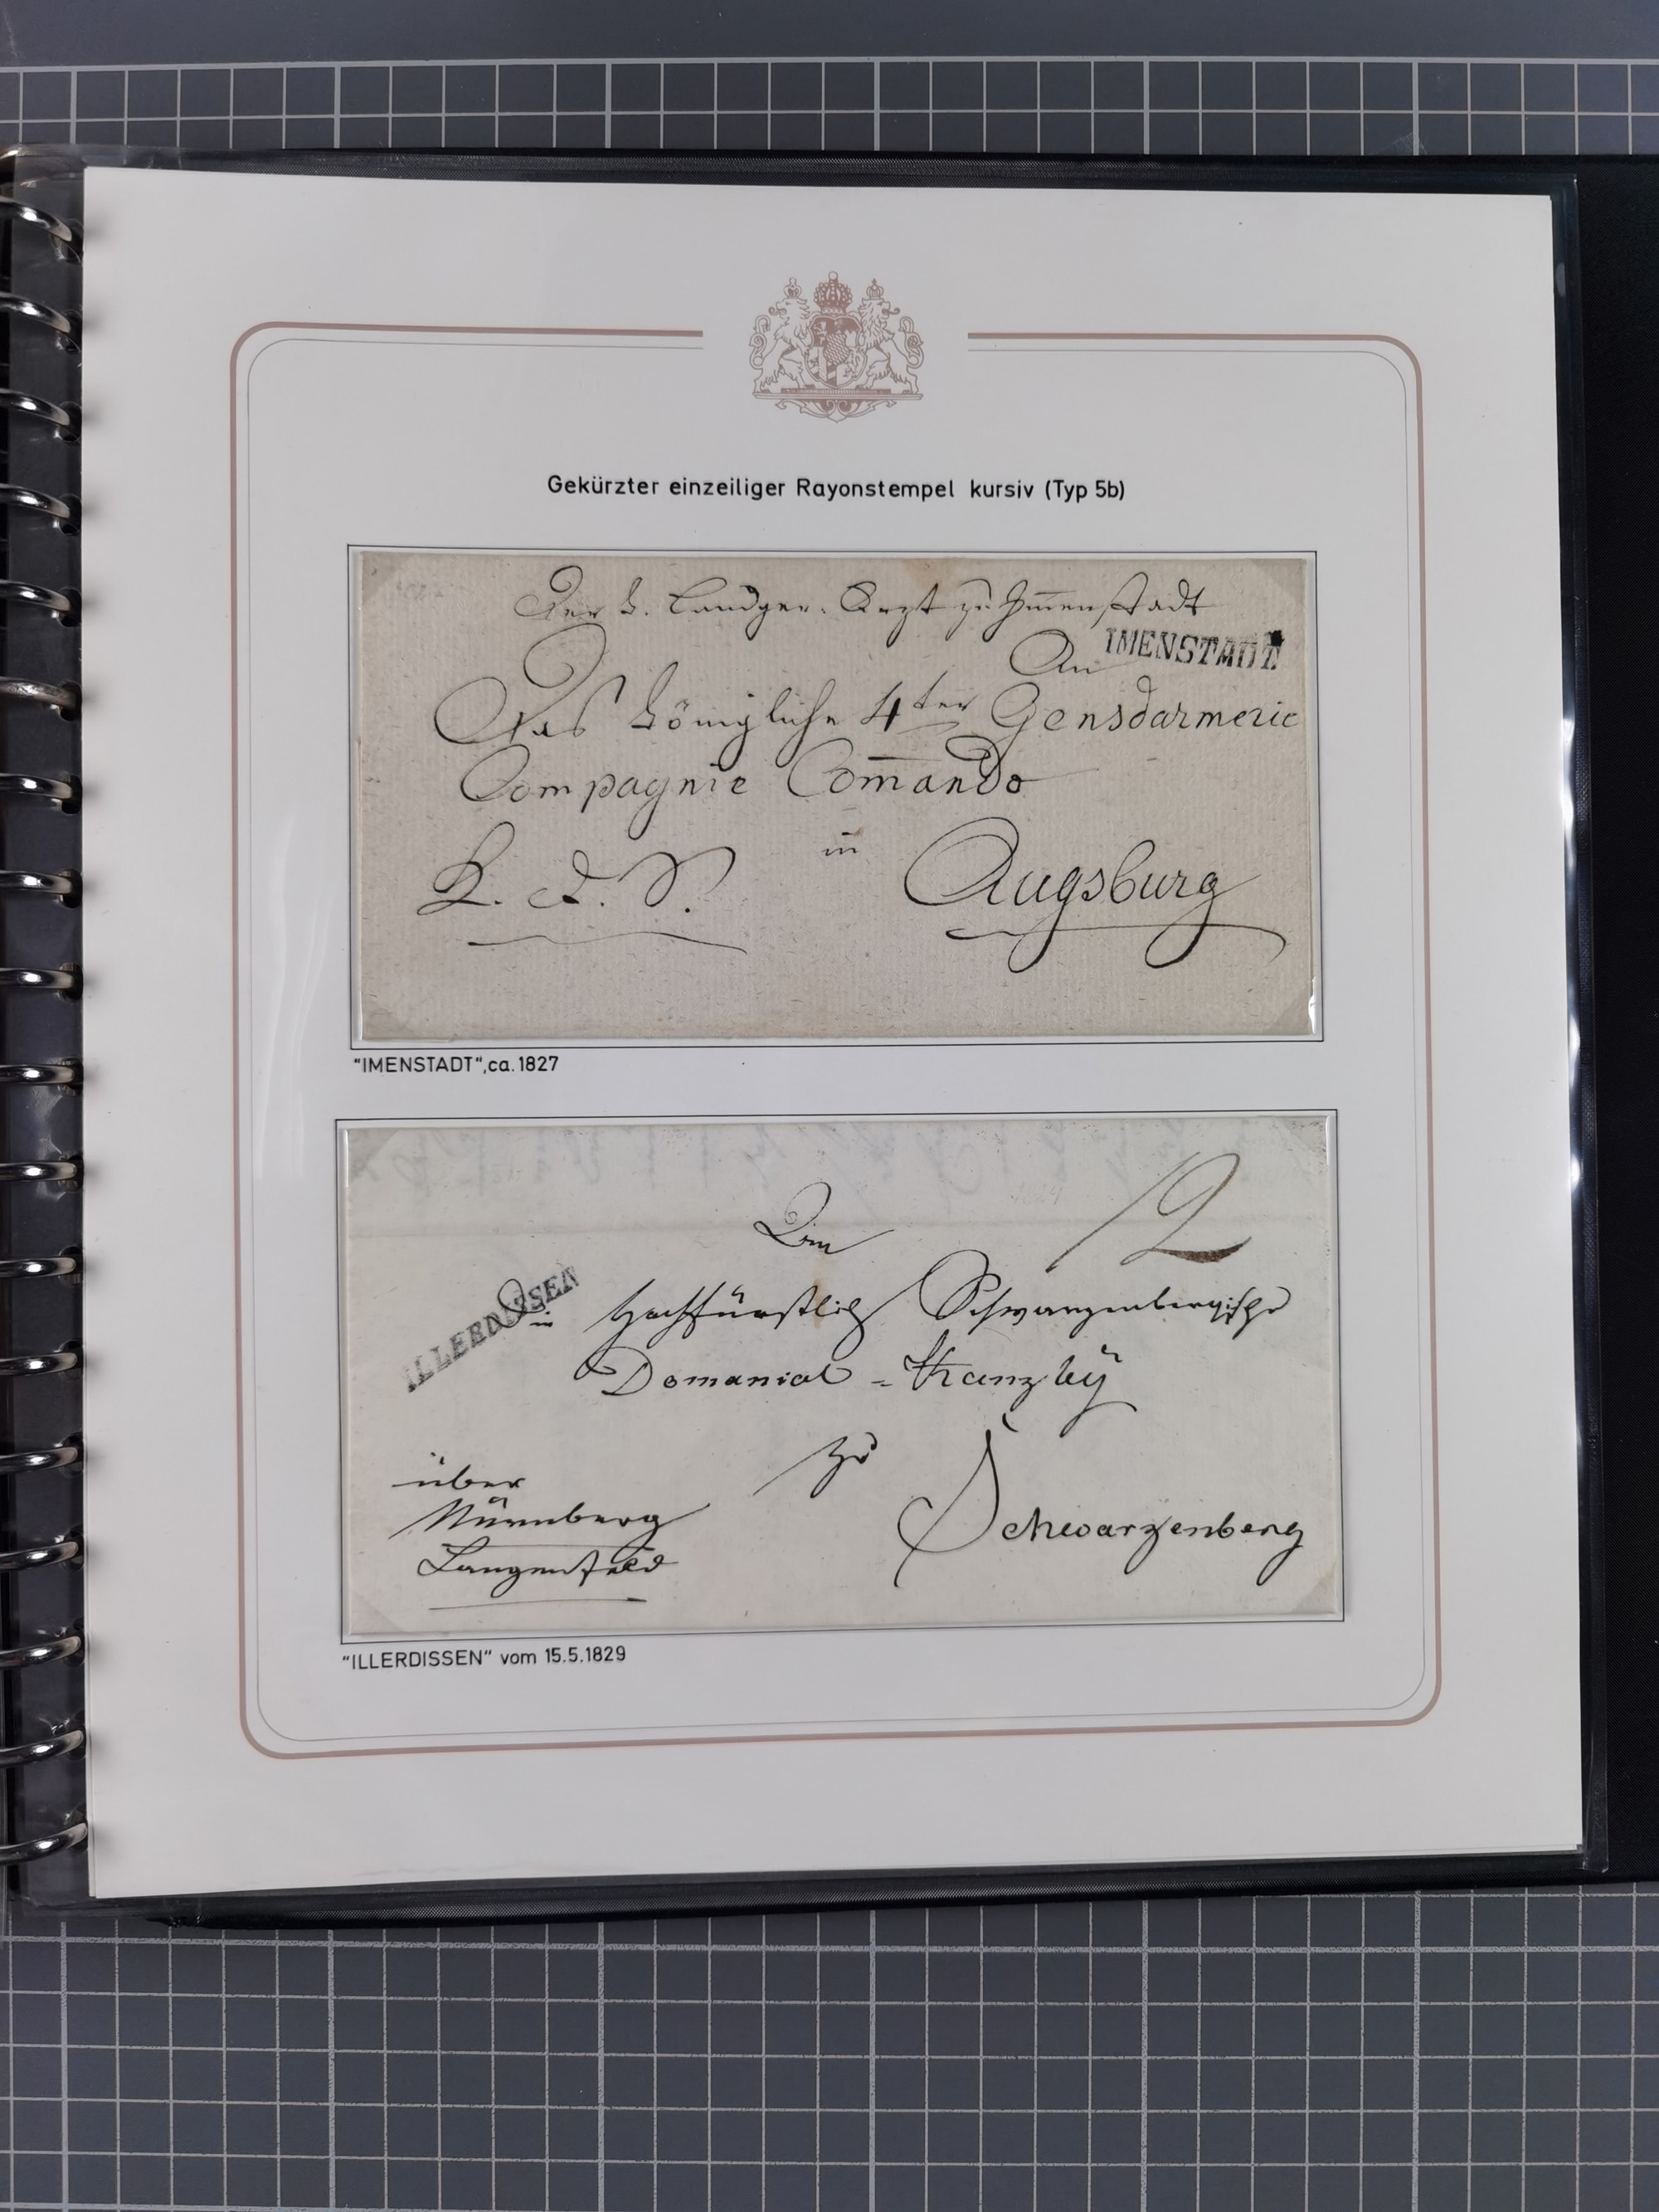 Gekürzter einzeiliger Rayonstempel kursiv (Typ 5b)
Der k. Landger. Arzt zu Im̅enstadt
IMENSTADT
An
Das königliche 4ter Gensdarmerie
Compagnie Com̅ando
in Augsburg
"IMENSTADT", ca. 1827
12
An
ILLERDISSEN
hochfürstlich Schwarzenbergische
Domanial = Kanzley
zu
über
Nürnberg
Langenfeld
Schwarzenberg
"ILLERDISSEN" vom 15.5.1829